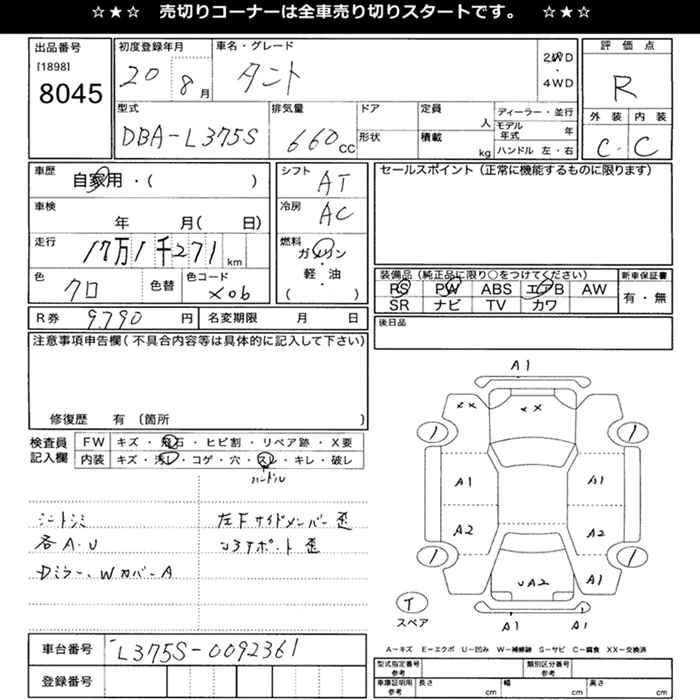 ☆★☆ 売切りコーナーは全車売り切りスタートです。 ☆★☆
出品番号
[1898]
8045
初度登録年月
20 8月
車名・グレード
タント
2WD
・
4WD
評価点
R
外装 内装
C C
型式
DBA-L375S
排気量
660cc
ドア
形状
定員
人
積載
kg
ディーラー・並行
モデル年式 年
ハンドル 左・右
車歴
自家用・( )
車検
年 月( 日)
走行
17万1千271km
色
クロ
色替
色コード
X06
シフト
AT
冷房
AC
燃料
ガソリン
・
軽・油
( )
セールスポイント(正常に機能するものに限ります)
装備品(純正品に限り○をつけてください)
PS PW ABS エアB AW
SR ナビ TV カワ
新車保証書
有・無
後日品
R券 9,790円
名変期限 月 日
注意事項申告欄(不具合内容等は具体的に記入して下さい)
修復歴 有 (箇所 )
検査員
記入欄
FW キズ・飛石・ヒビ割・リペア跡・X要
内装 キズ・汚レ・コゲ・穴・スレ・キレ・破レ
ハンドル
シートシミ
各A・U
Dミラー、WカバーA
左Fサイドメンバー歪
コアサポート歪
A1
XX
XX
A1
A1
A2
A2
UA2
A1
A1
A1
スペア
A-キズ E-エクボ U-凹み W-補修跡 S-サビ C-腐食 XX-交換済
車台番号
L375S-0092361
登録番号
型式指定番号
参考
類別区分番号
参考
車庫証明用
参考
長さ cm
幅 cm
高さ cm